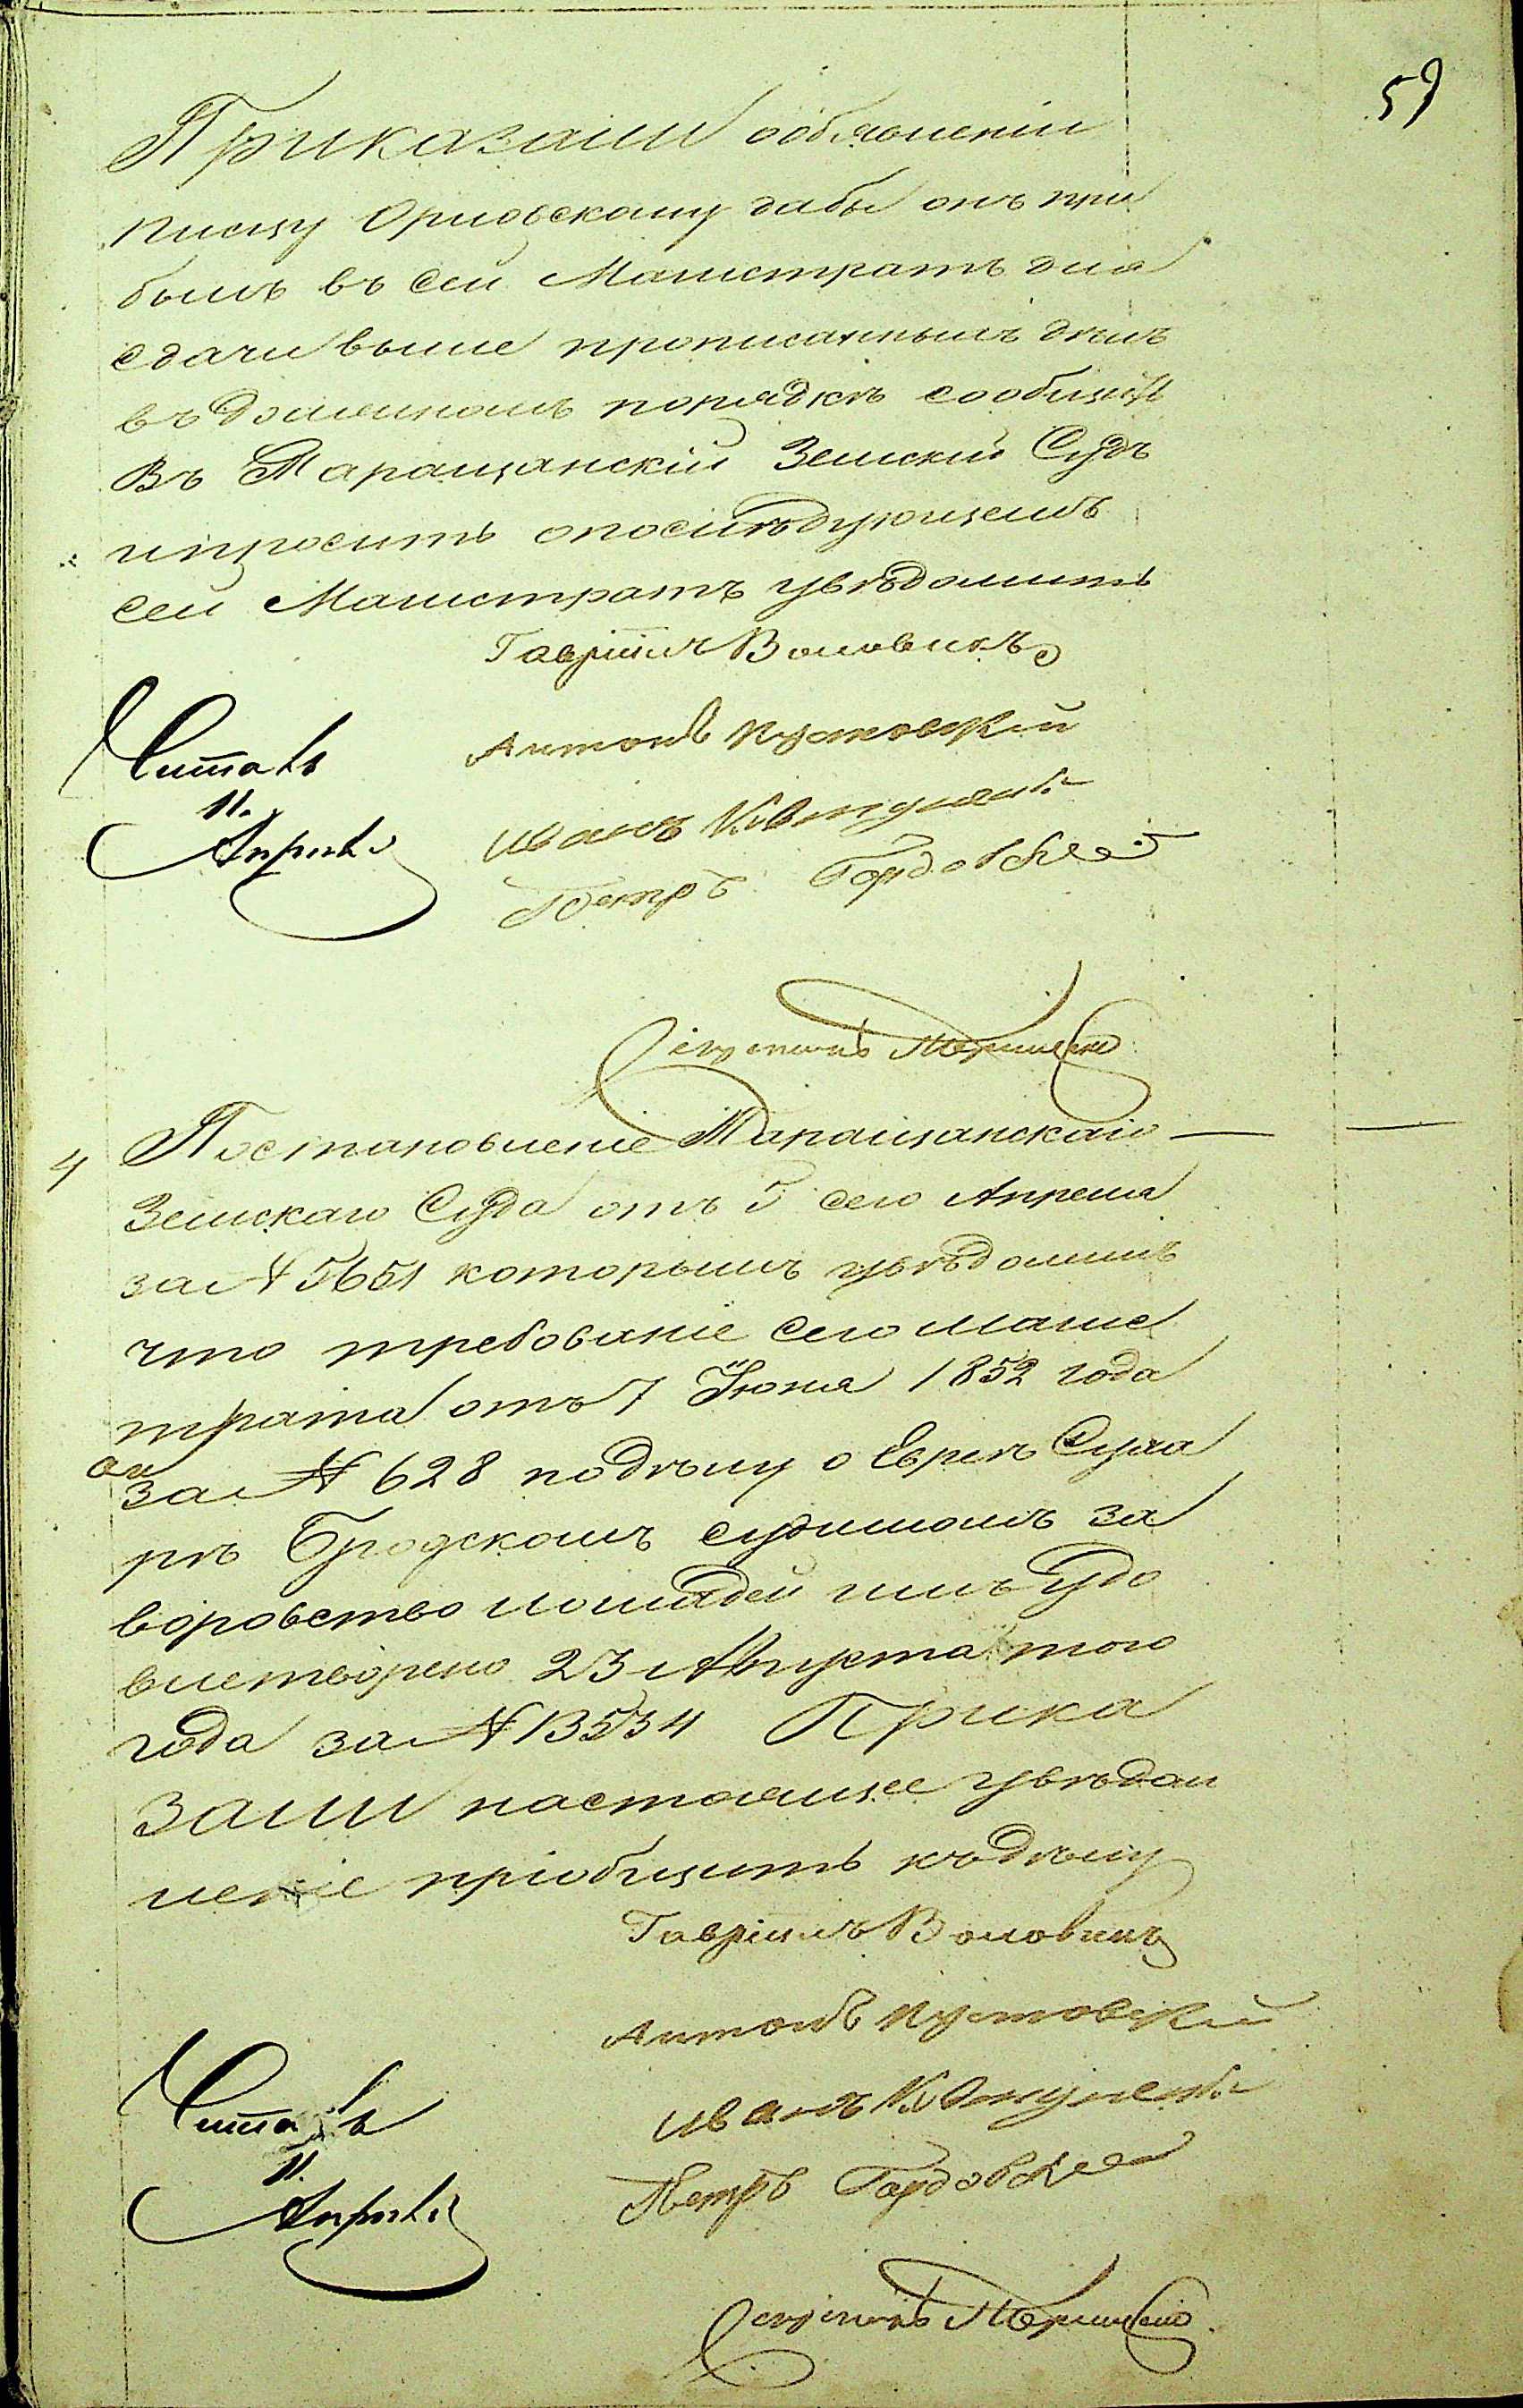 59
Приказали ообъявленіи
писцу Орловскому дабы онъ при
былъ въ сей Магистратъ для
сдачи выше прописаннымъ дѣлъ
въ должномъ порядкѣ сообщить
Въ Таращанскій Земскій Судъ
ипросить опослѣдующемъ
сей Магистратъ увѣдомить
Гавріилъ Воловикъ
Антонъ Кустовскій
Иванъ
Петръ Гордовскій
Читалъ
11.
Апрѣля
Секретарь
4 Постановленіе Таращанскаго
Земскаго Суда отъ 5 сего Апреля
за № 5651 которымъ увѣдомилъ
что требованіе сего Магис
трата отъ 7 Іюня 1852 года
за № 628 подѣлу о Евреѣ Суха
рѣ Бродскомъ судимомъ за
воровство лошадей имъ удо
влетворено 23 Августа того
года за № 13534 Прика
зали настоящее увѣдом
леніе пріобщить къдѣлу
Гавріилъ Воловикъ
Антонъ Кустовскій
Иванъ
Петръ Гордовскій
Читалъ
11.
Апрѣля
Секретарь